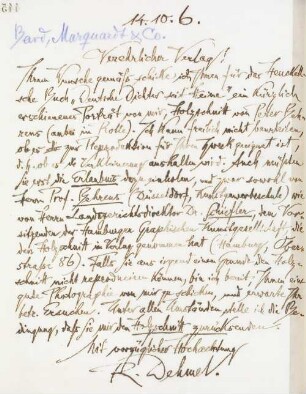 14.10.6.
Bard, Marquardt & Co.
Verehrlicher Verlag!
Ihrem Wunsche gemäß schicke ich Ihnen für das Henckell-
sche Buch „Deutsche Dichter seit Heine" ein kürzlich
erschienenes Porträt von mir, Holzschnitt von Peter Beh-
rens (anbei in Rolle). Ich kann freilich nicht beurteilen,
ob es zur Reproduktion für Ihren Zweck geeignet ist,
d. h. ob es die Verkleinerung aushalten wird. Auch müßten
Sie erst die Erlaubnis dazu einholen, und zwar sowohl von
Herrn Prof. Behrens (Düsseldorf, Kunstgewerbeschule) wie
von Herrn Landgerichtsdirektor Dr. Schiefler, dem Vor-
sitzenden der Hamburger Graphischen Kunstgesellschaft, die
den Holzschnitt in Verlag genommen hat (Hamburg, Ober-
straße 86). Falls Sie aus irgend einem Grunde den Holz-
schnitt nicht reproduzieren können, bin ich bereit, Ihnen eine
gute Photographie von mir zu schicken, und erwarte Ihr
ersuchen. Unter allen Umständen stelle ich die Be-
dingung, daß Sie mir den Holzschnitt zurücksenden.
Mit vorzüglicher Hochachtung
R. Dehmel.